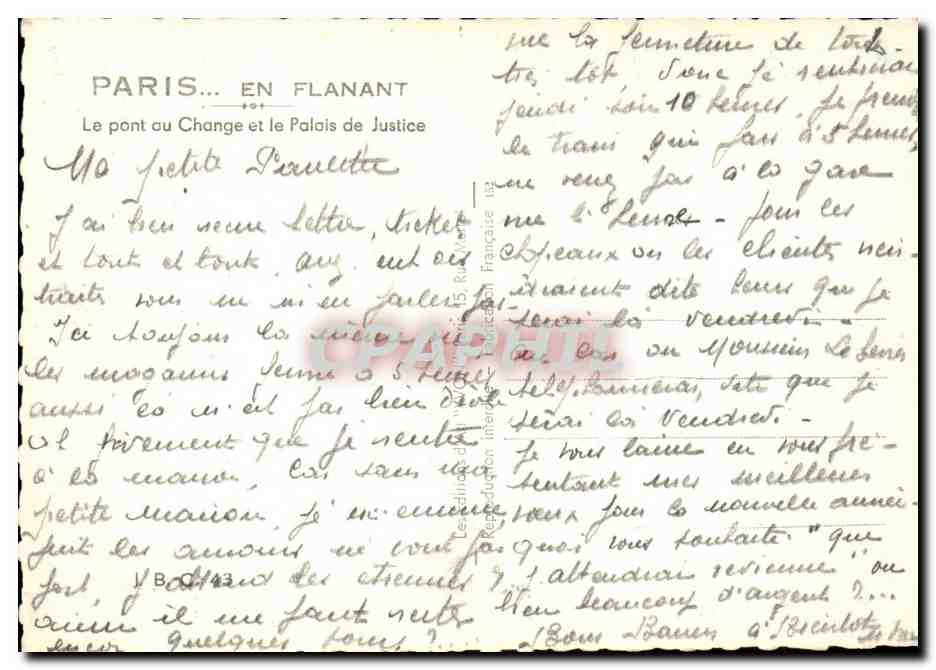 PARIS... EN FLANANT
Le pont au Change et le Palais de Justice
Ma petite Paulette
J'ai bien reçue lettre, ticket
et tout et tout,
traits vous ne m'en parlez pas
Ici toujours la même
les magasins ferme à 5 heures
aussi ça n'est pas bien drôle
vivement que je rentre
à la maison, Car sans ma
petite maison, je m'ennuie
puis les amours ne vont pas
fort, J'attend les étrennes
ainsi il me faut rester
encor quelques jours ?...
V B C 43
Les éditions d'art 15, Rue
Reproduction interdite Fabrication Française 152
CPAPHIL
vue la fermeture de tout
très tôt donc je rentrerai
jeudi soir 10 heures, Je prend
le train qui pars à 5 heures,
ne venez pas à la gare
vue l'heure - pour les
chapeaux ou les clients vien-
draient dite leurs que je
serai là vendredi -
au cas ou Monsieur
telephonerai, dite que je
serai là Vendredi -
Je vous laisse en vous pré-
sentant mes meilleurs
vœux pour la nouvelle année
quoi vous souhaiter "que
j'attendrai revienne" ou
bien beaucoup d'argent ?...
Bons Baisers à Bientôt